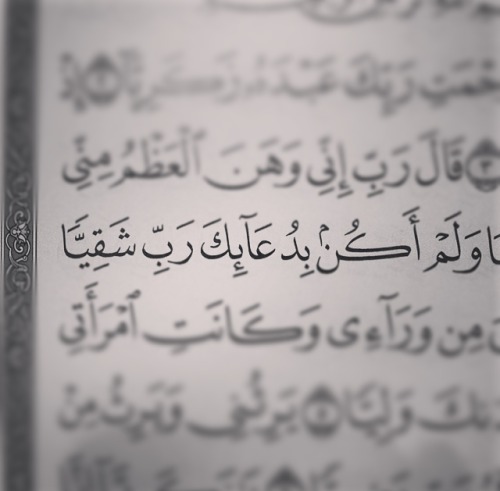 رَبِّكَ عَبْدَهُۥ زَكَرِيَّآ ۝٢ إِذْ
۝٣ قَالَ رَبِّ إِنِّى وَهَنَ ٱلْعَظْمُ مِنِّى
وَلَمْ أَكُنۢ بِدُعَآئِكَ رَبِّ شَقِيًّا
مِن وَرَآءِى وَكَانَتِ ٱمْرَأَتِى
وَلِيًّا ۝٥ يَرِثُنِى وَيَرِثُ مِنْ